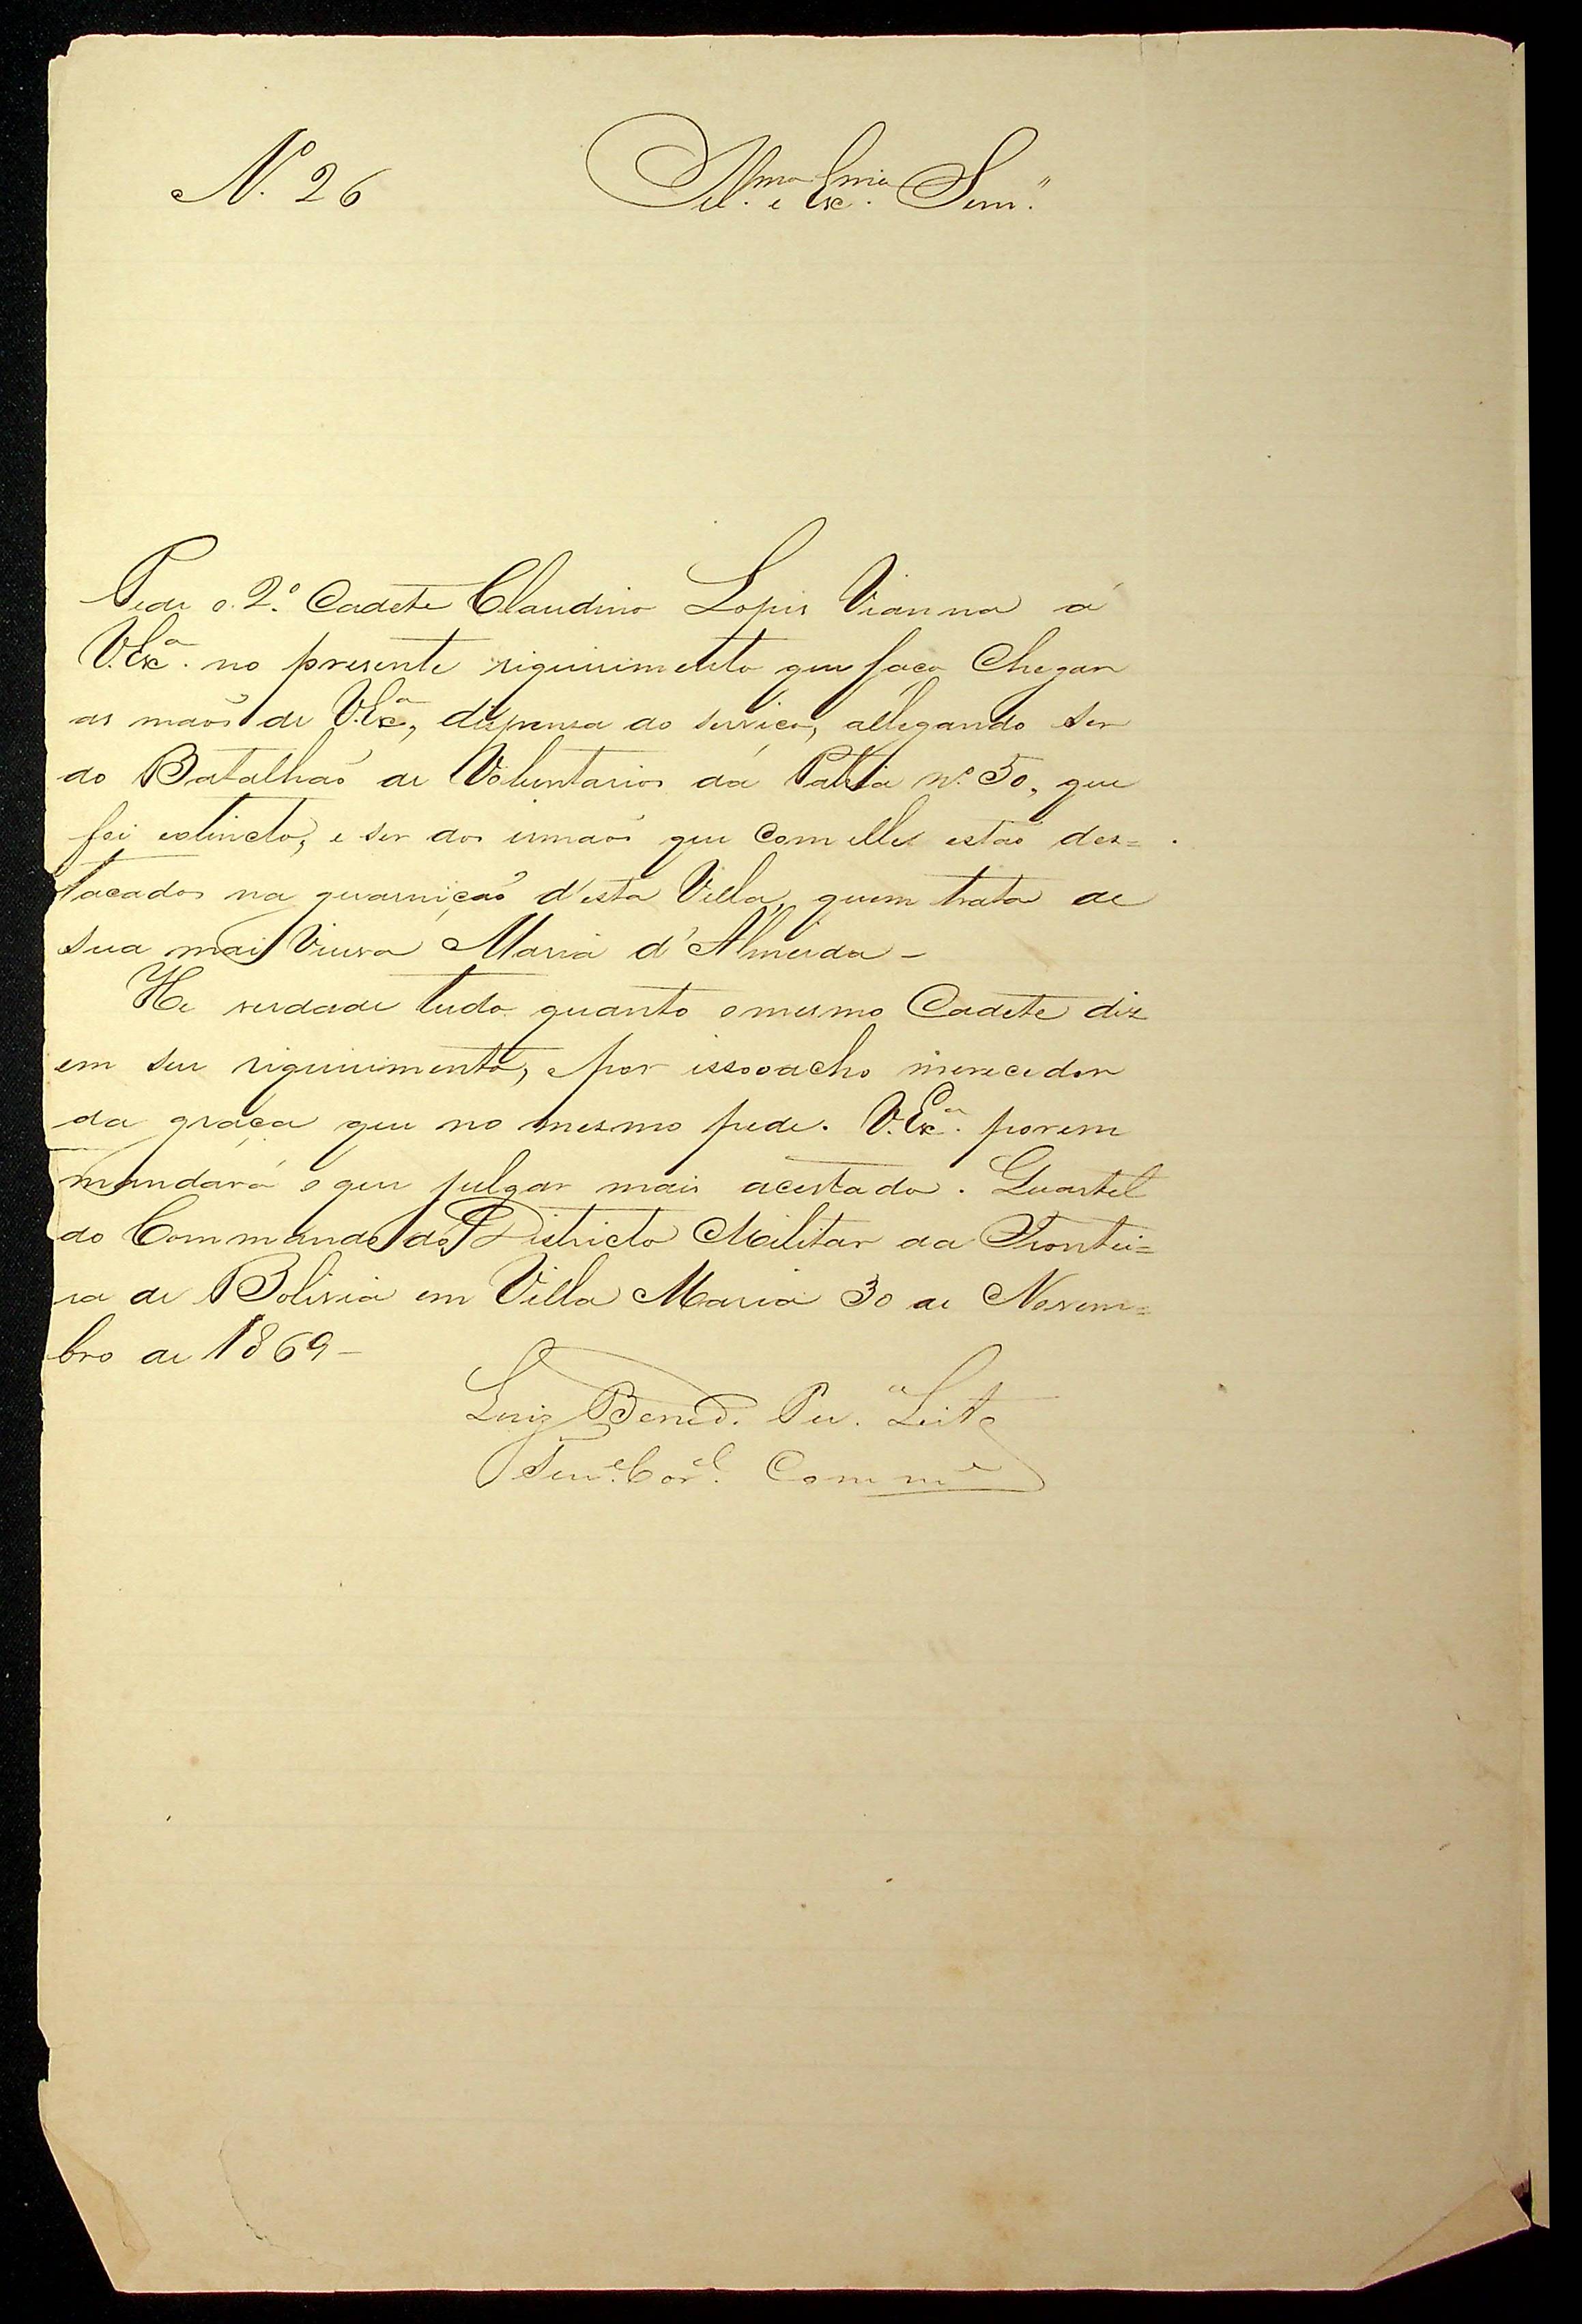 N.º 26 Ill.mo e Ex.mo Senr.
Pede o 2.º Cadete Claudino Lopes Vianna á
V.Exc.ª no presente riquirimento que faço chegar
as maõs de V.Exc.ª, dispensa do serviço, allegando ser
do Batalhaõ de Voluntarios da Patria n.º 50, que
foi extincto, e ser dos irmaõs que com elles estaõ des=
tacados na guarniçaõ d'esta Villa, quem trata de
sua mai Viuva Maria d'Almeida –
He verdade tudo quanto o mesmo Cadete diz
em seu riquirimento, e por isso o acho merecedor
da graça que no mesmo pede. V.Exc.ª porem
mandará o que julgar mais acertado. Quartel
do Commando do Districto Militar da Frontei=
ra de Bolivia em Villa Maria 30 de Novem=
bro de 1869 –
Luiz Bened. Per.ª Leite
Ten.e Cor.el Comm.e